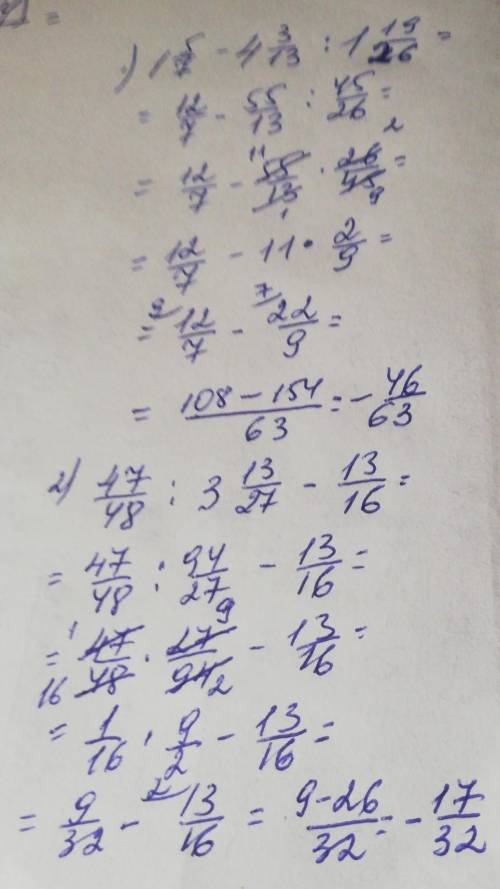 1) 1 5/7 - 4 3/13 : 1 19/26 =
= 12/7 - 55/13 : 45/26 =
= 12/7 - 55/13 · 26/45 =
= 12/7 - 11 · 2/9 =
= 12/7 - 22/9 =
= (108 - 154)/63 = - 46/63
2) 47/48 : 3 13/27 - 13/16 =
= 47/48 : 94/27 - 13/16 =
= 47/48 · 27/94 - 13/16 =
= 1/16 · 9/2 - 13/16 =
= 9/32 - 13/16 = (9-26)/32 = - 17/32